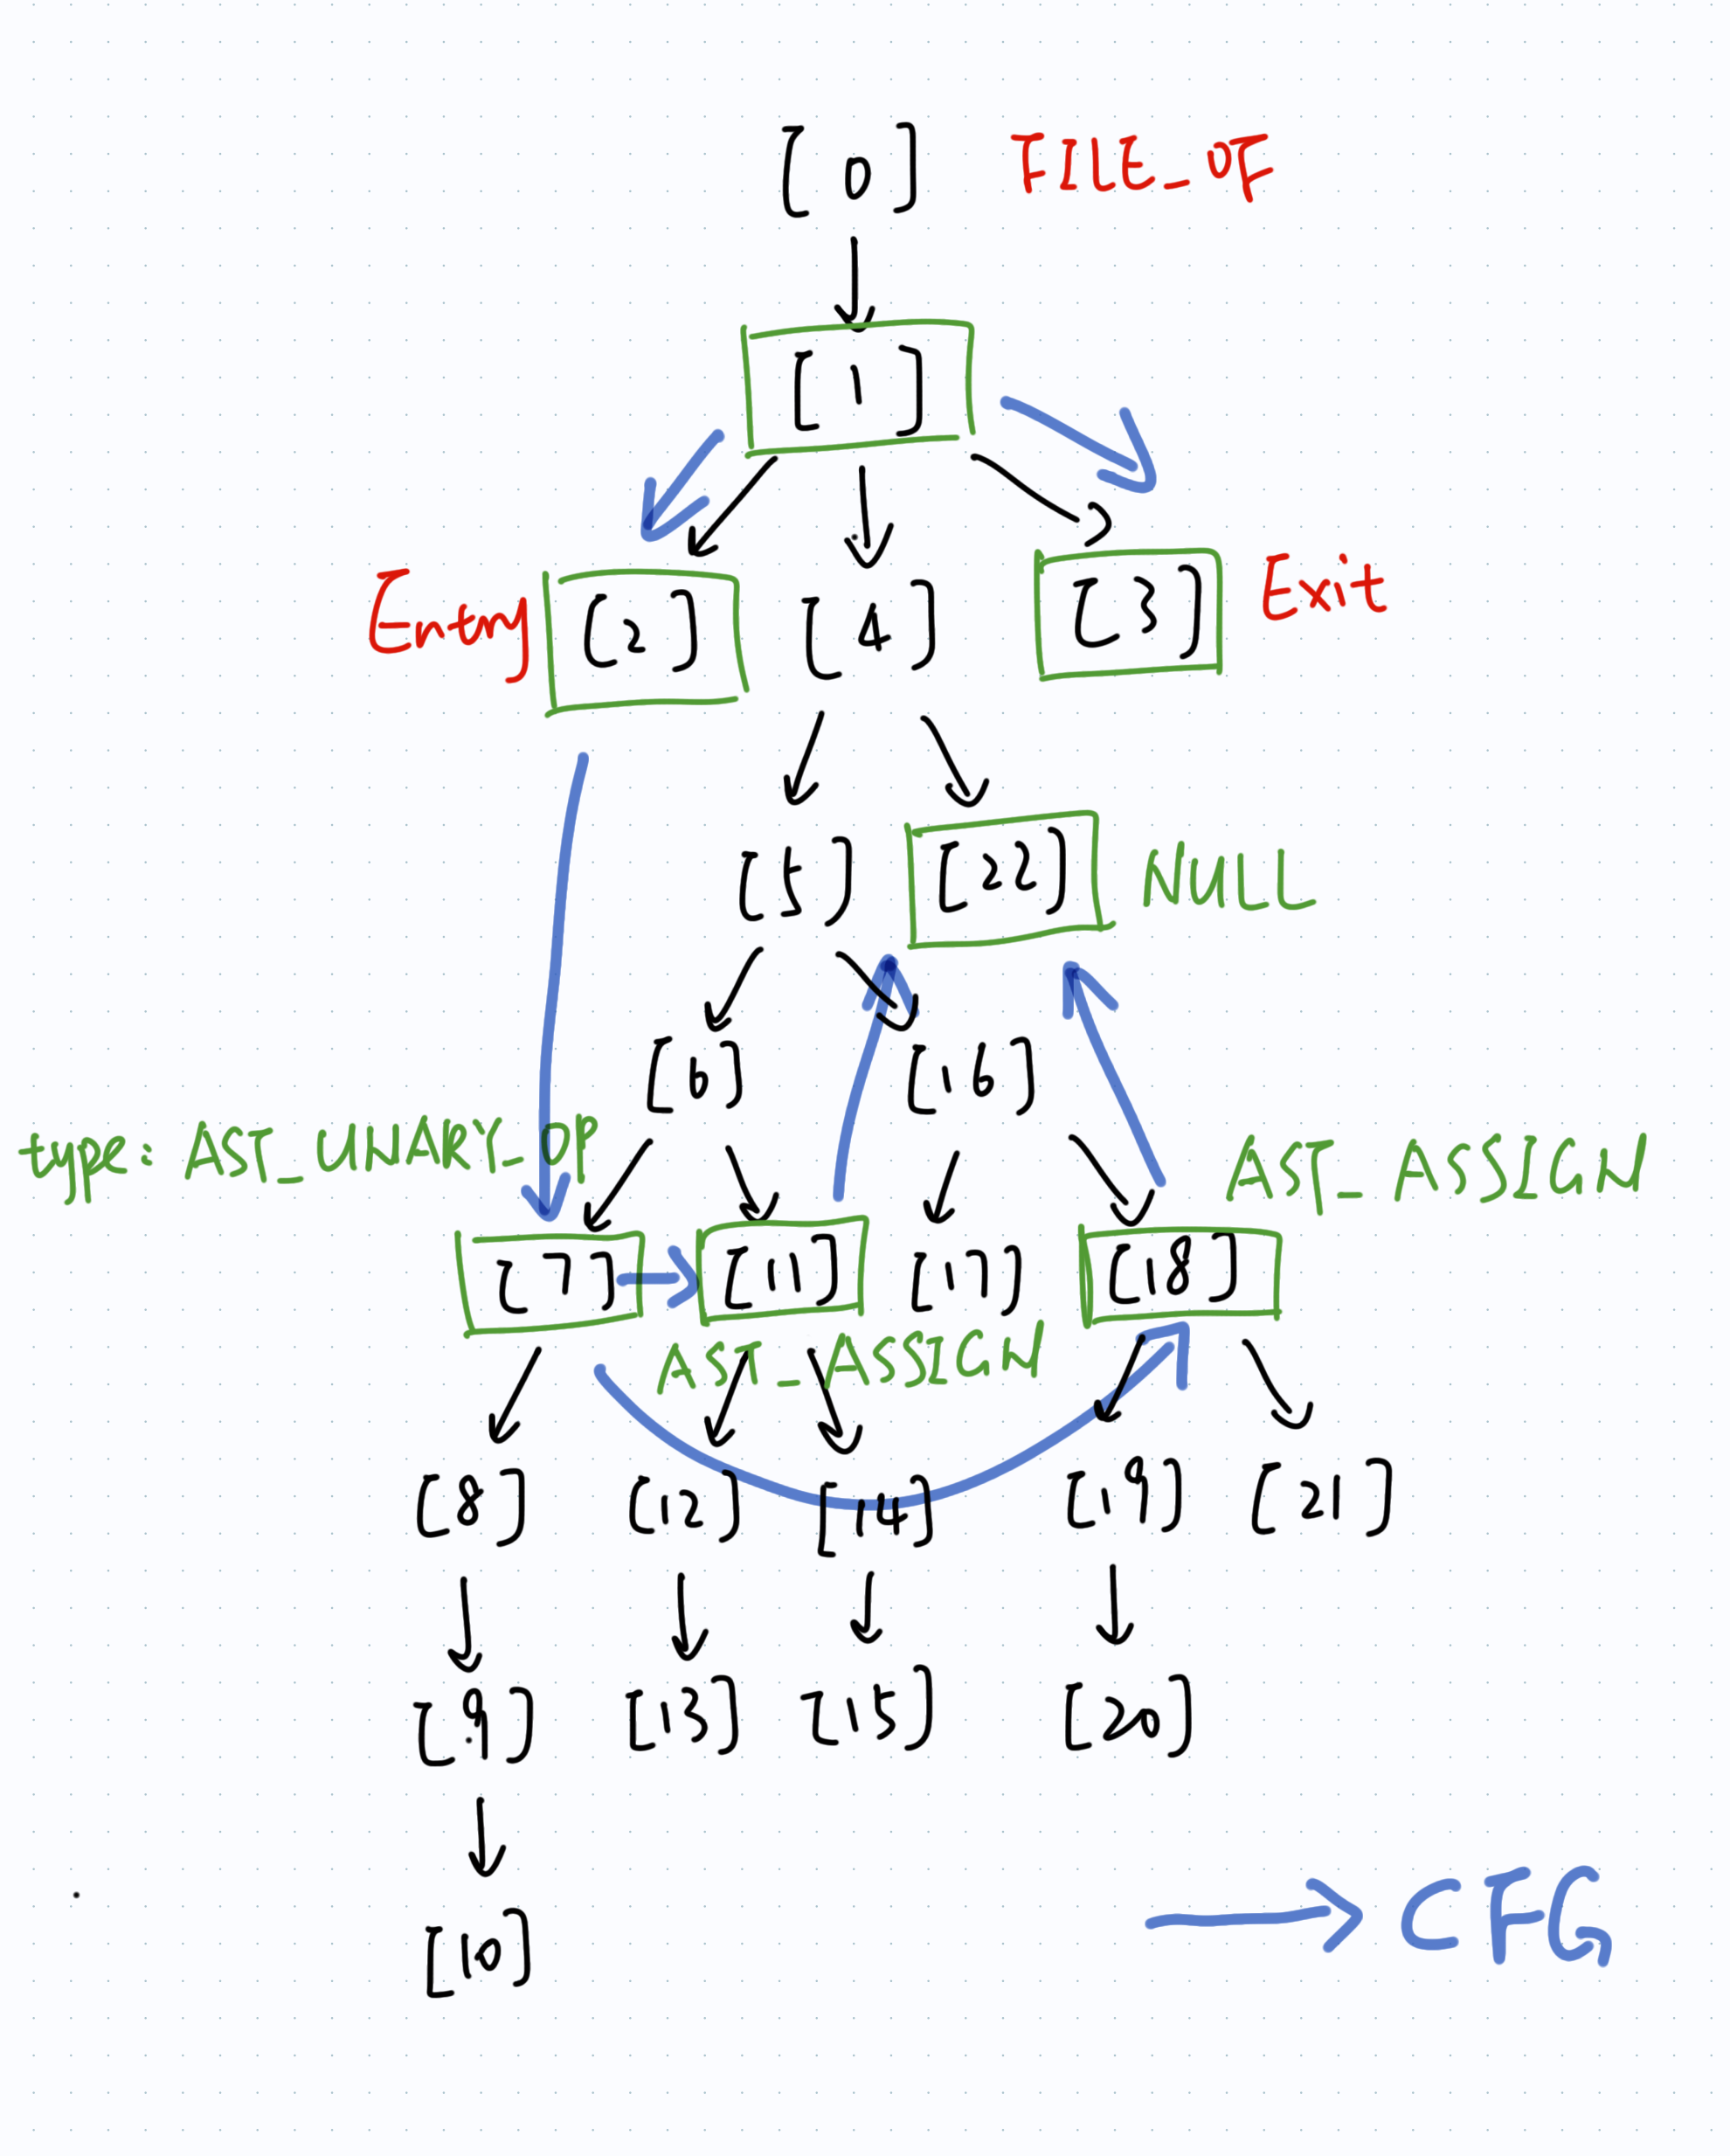 [0] FILE_OF
[1]
Entry [2] [4] [3] Exit
[5] [22] NULL
[6] [16]
type: AST_UNARY_OP AST_ASSIGN
[7] [11] [17] [18]
AST_ASSIGN
[8] [12] [14] [19] [21]
[9] [13] [15] [20]
[10]
CFG